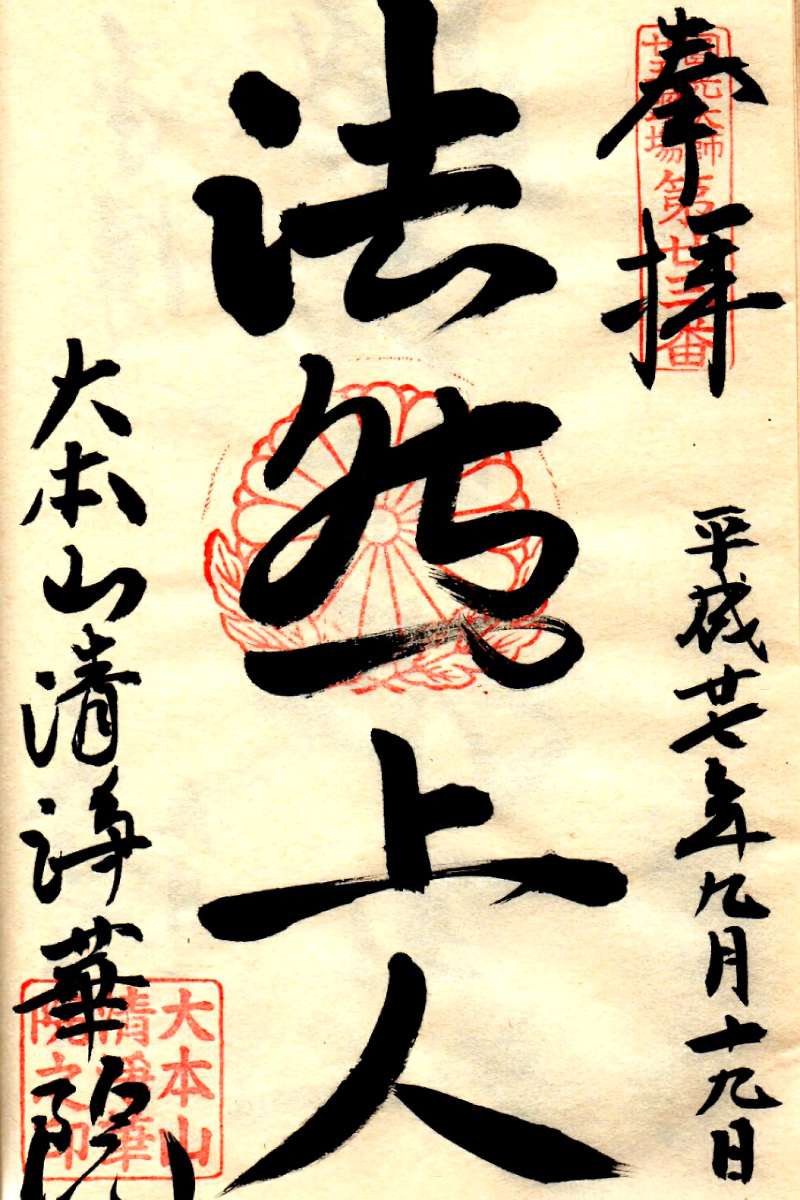 奉拝
圓光大師
廿五霊場
第廿三番
平成廿七年九月十九日
法然上人
大本山清浄華院
大本山
清浄華
院之印